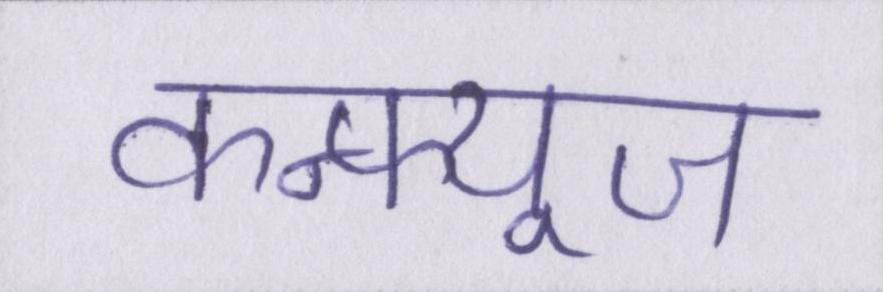 कन्फ्यूज